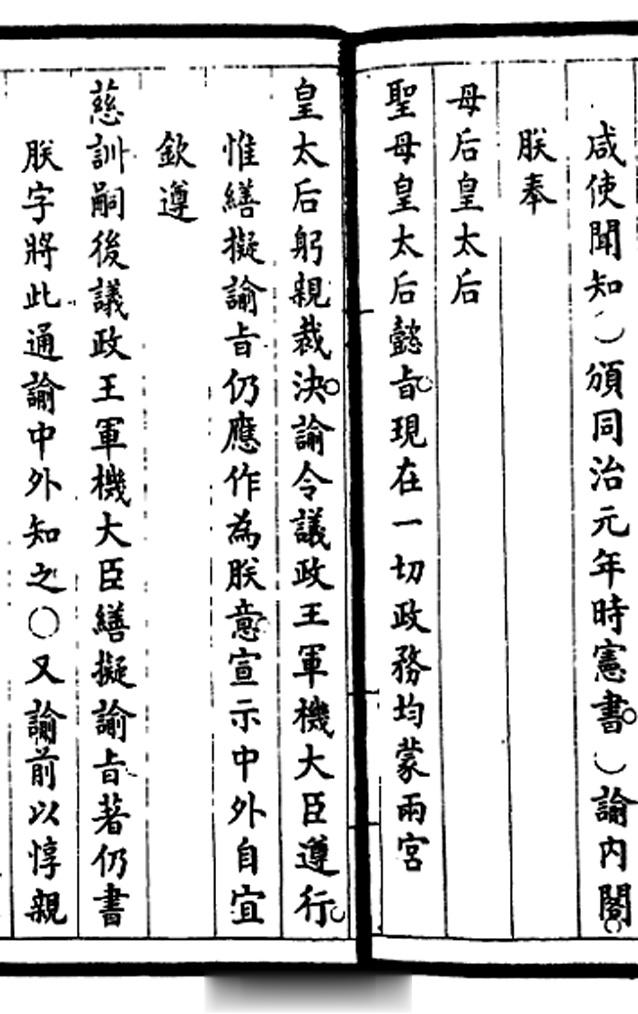 咸使聞知○頒同治元年時憲書○諭內閣
朕奉
母后皇太后
聖母皇太后懿旨現在一切政務均蒙兩宮
皇太后躬親裁決諭令議政王軍機大臣遵行
惟繕擬諭旨仍應作為朕意宣示中外自宜
欽遵
慈訓嗣後議政王軍機大臣繕擬諭旨著仍書
朕字將此通諭中外知之○又諭前以惇親